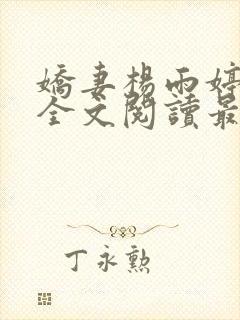 嬌妻楊雨婷
全文閱讀最
丁永勲